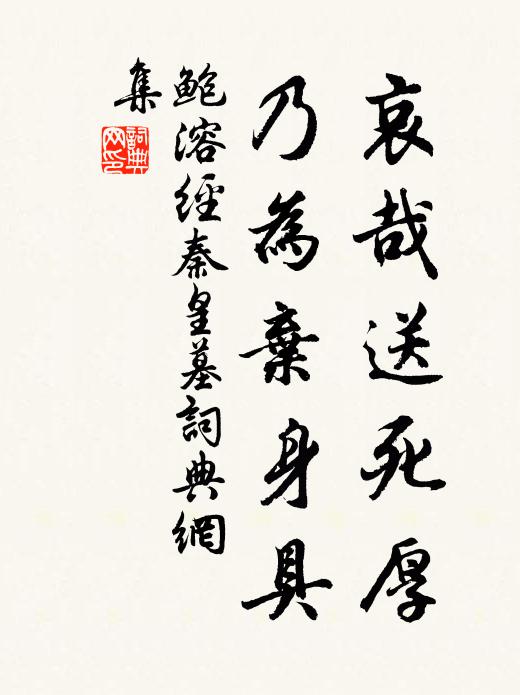 哀哉送死厚
乃為棄身具
鮑溶經秦皇墓詞典網
集
詞典
网印